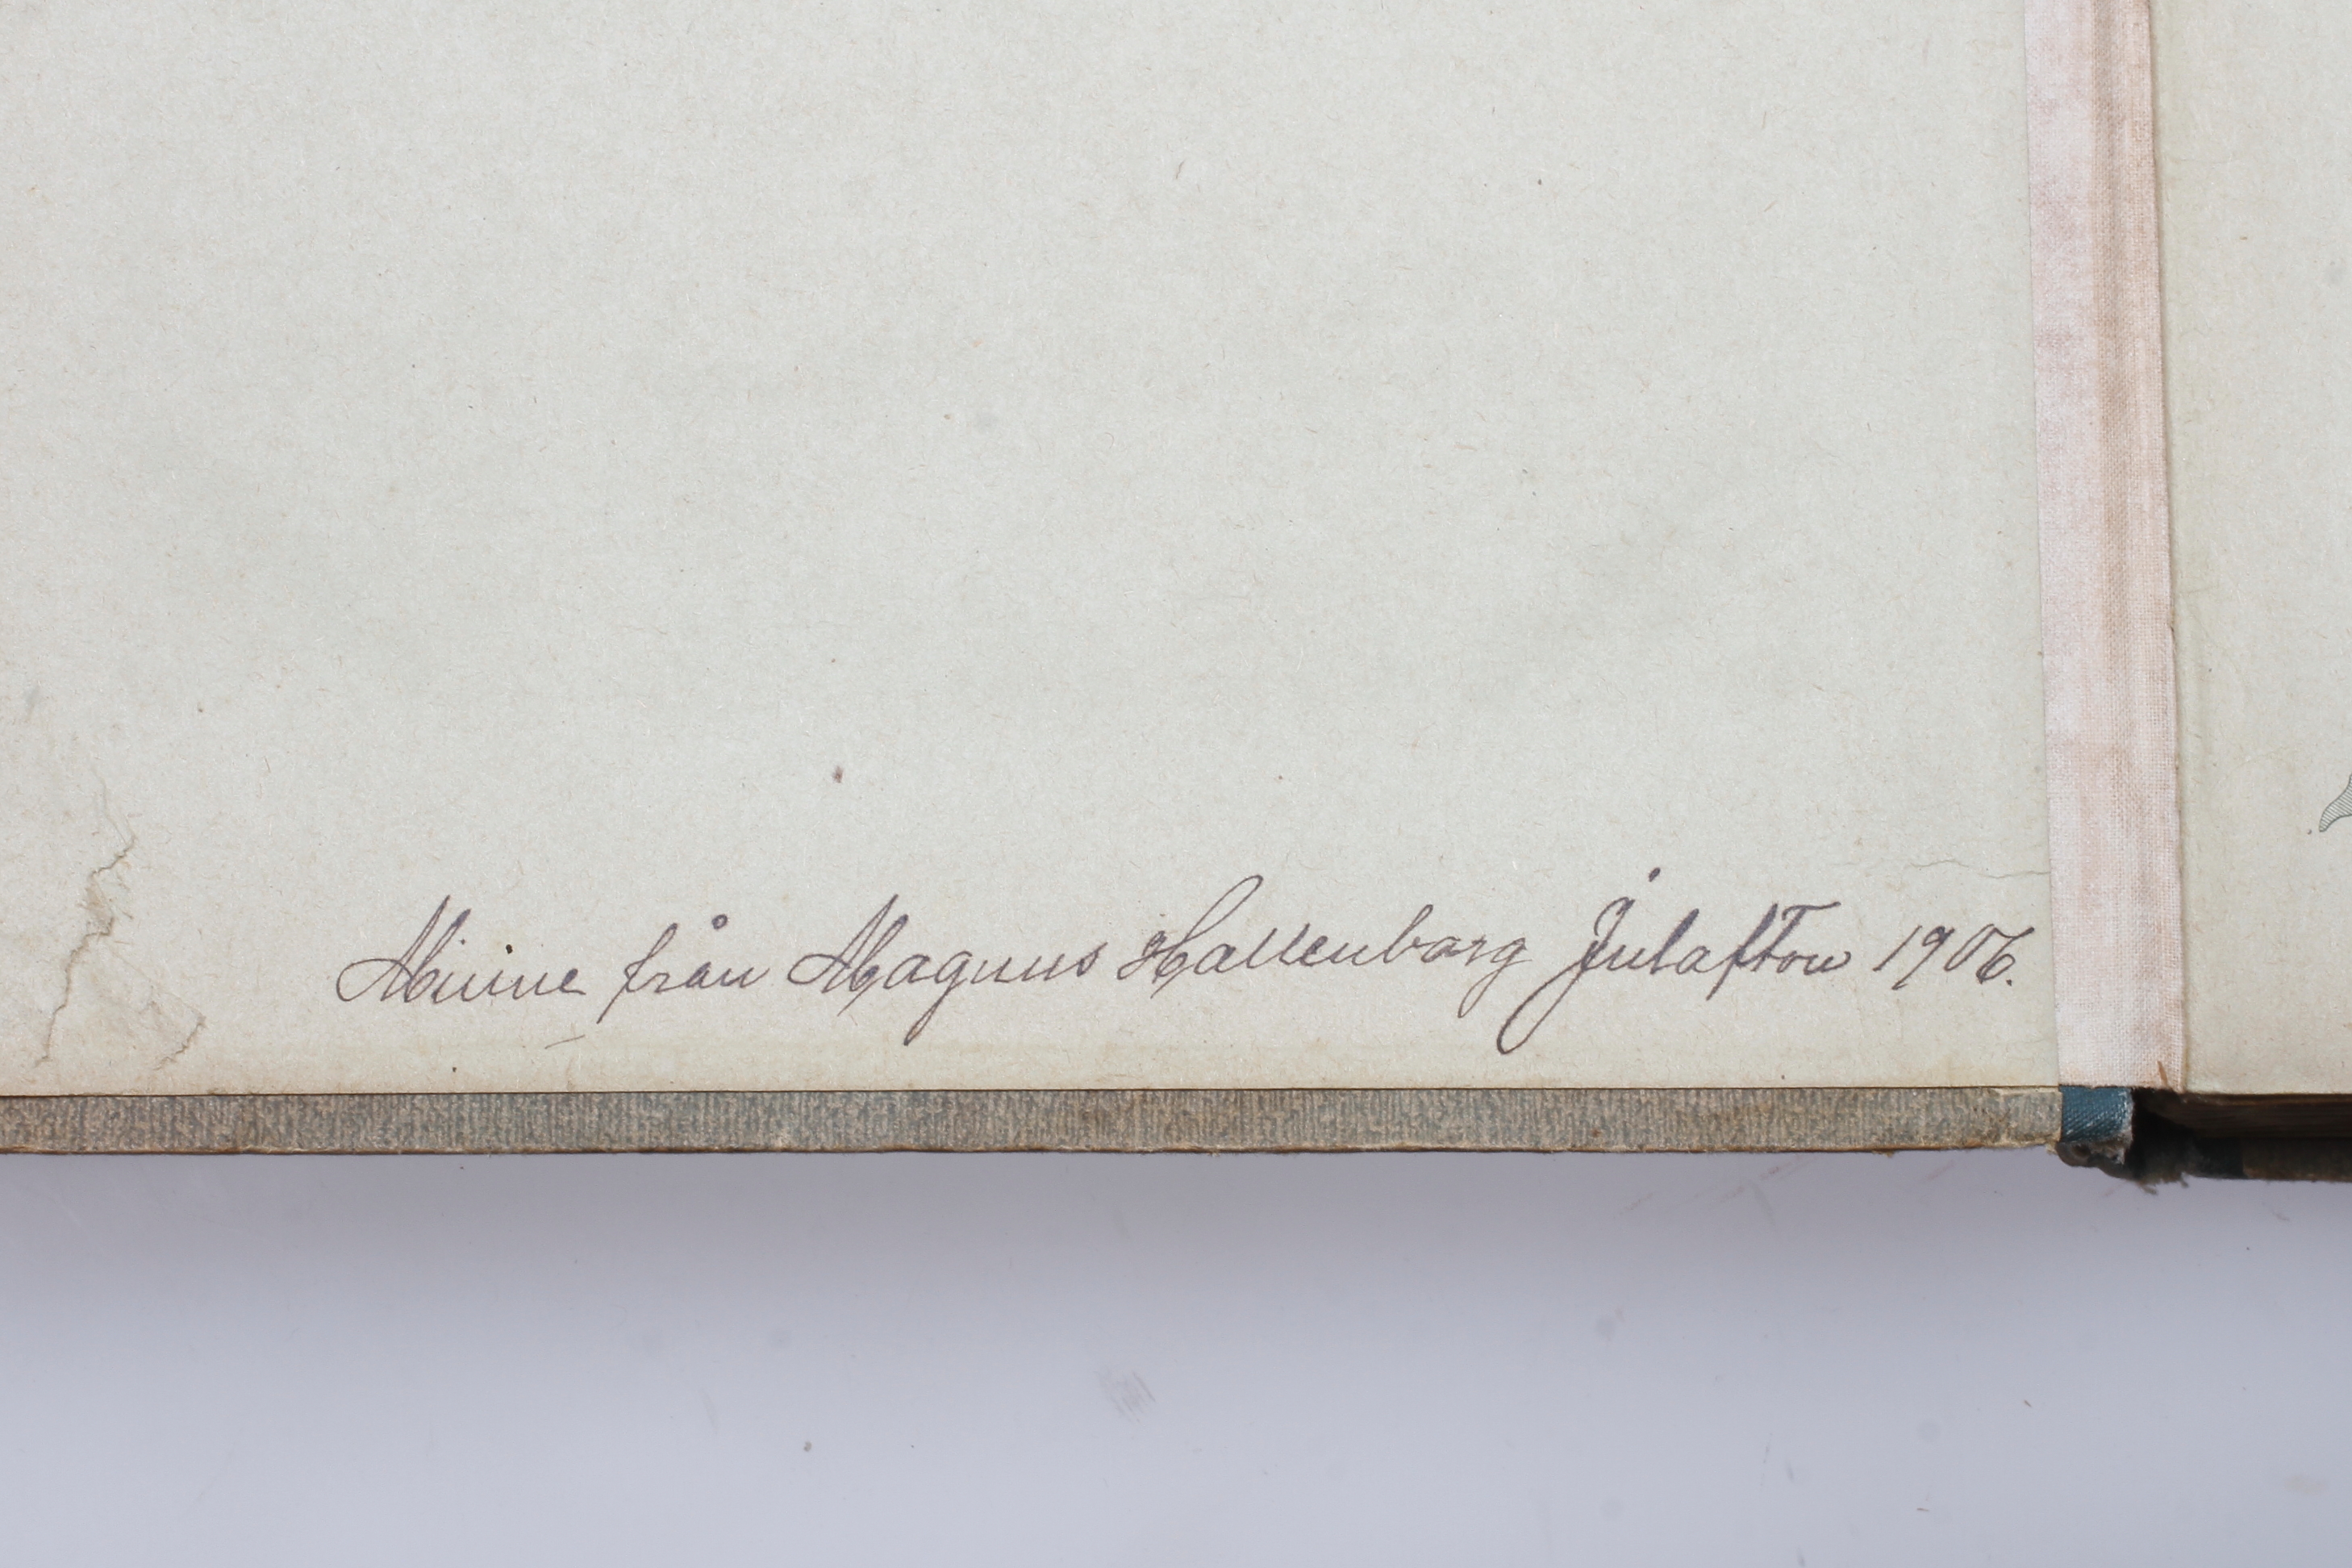 Minne från Magnus Hallenbarg Julafton 1906.